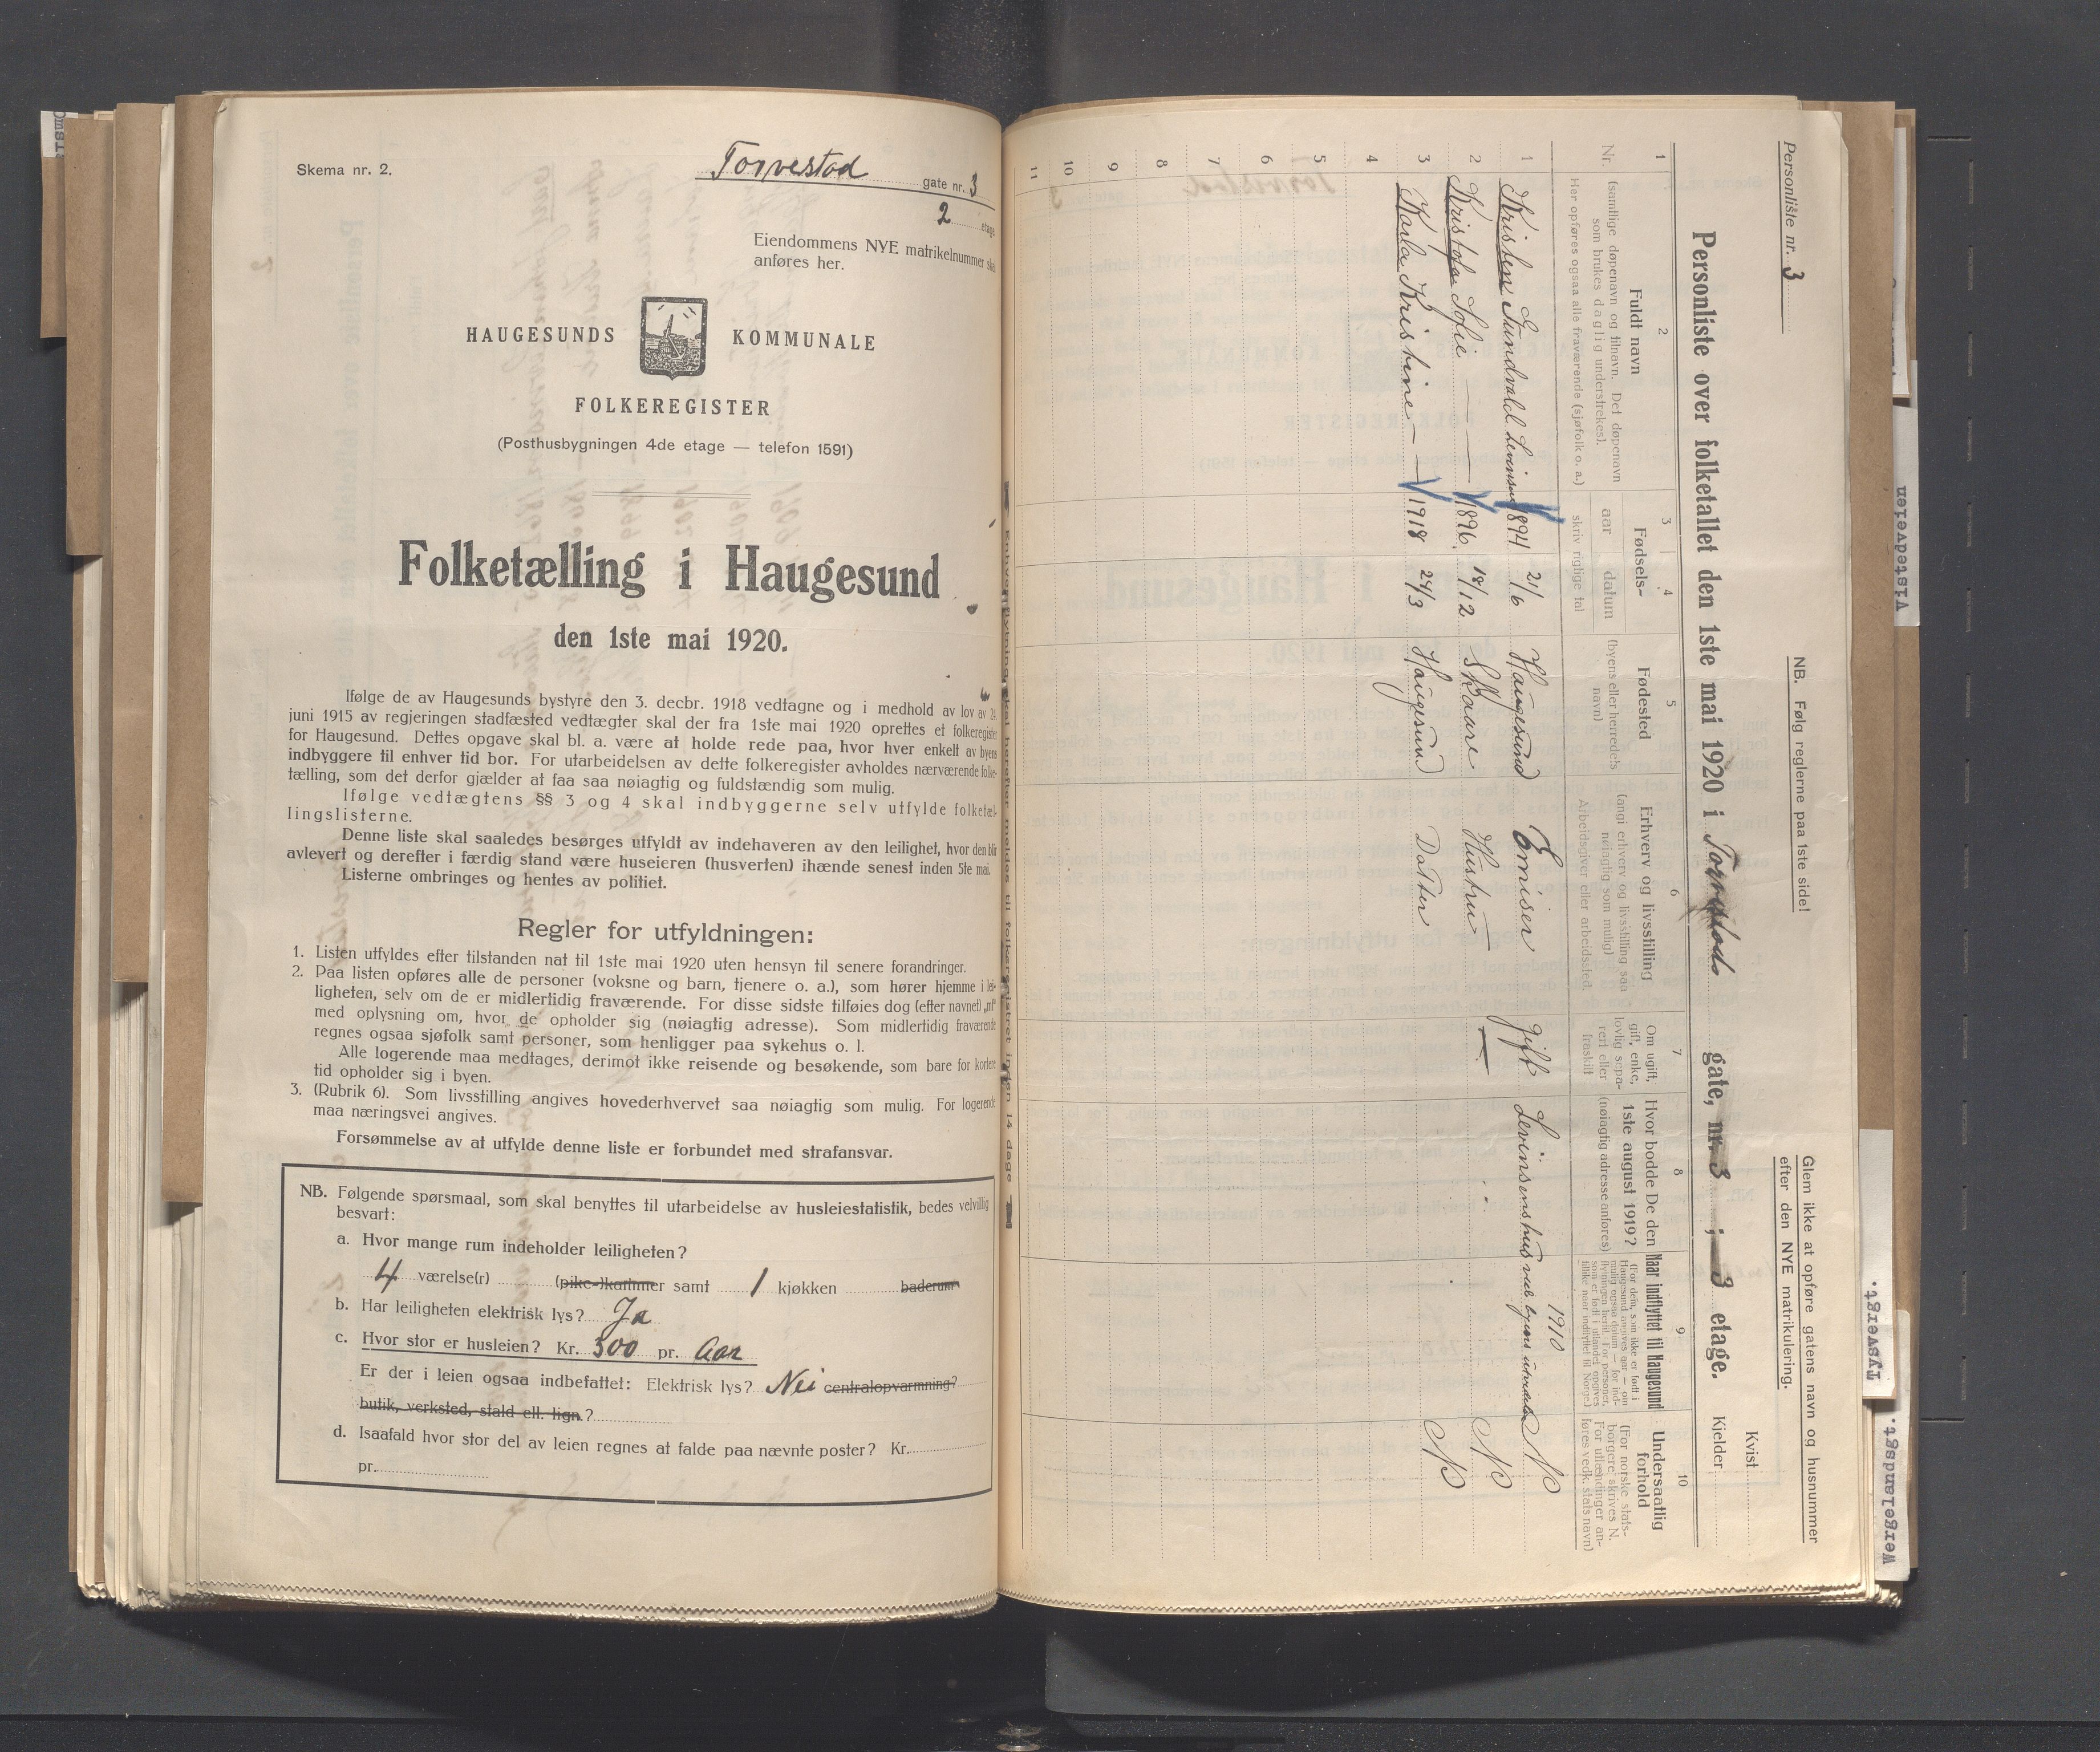 Skema nr. 2.
Torvestad gate nr. 3
2 etage
Eiendommens NYE matrikelnummer skal
anføres her.
HAUGESUNDS KOMMUNALE
FOLKEREGISTER
(Posthusbygningen 4de etage — telefon 1591)
Folketælling i Haugesund
den 1ste mai 1920.
Ifølge de av Haugesunds bystyre den 3. decbr. 1918 vedtagne og i medhold av lov av 24.
juni 1915 av regjeringen stadfæsted vedtægter skal der fra 1ste mai 1920 oprettes et folkeregister
for Haugesund. Dettes opgave skal bl. a. være at holde rede paa, hvor hver enkelt av byens
indbyggere til enhver tid bor. For utarbeidelsen av dette folkeregister avholdes nærværende folke-
tælling, som det derfor gjælder at faa saa nøiagtig og fuldstændig som mulig.
Ifølge vedtægtens §§ 3 og 4 skal indbyggerne selv utfylde folketæl-
lingslisterne.
Denne liste skal saaledes besørges utfyldt av indehaveren av den leilighet, hvor den blir
avlevert og derefter i færdig stand være huseieren (husverten) ihænde senest inden 5te mai.
Listerne ombringes og hentes av politiet.
Regler for utfyldningen:
1. Listen utfyldes efter tilstanden nat til 1ste mai 1920 uten hensyn til senere forandringer.
2. Paa listen opføres alle de personer (voksne og barn, tjenere o. a.), som hører hjemme i lei-
ligheten, selv om de er midlertidig fraværende. For disse sidste tilføies dog (efter navnet) „mf"
med oplysning om, hvor de opholder sig (nøiagtig adresse). Som midlertidig fraværende
regnes ogsaa sjøfolk samt personer, som henligger paa sykehus o. l.
Alle logerende maa medtages, derimot ikke reisende og besøkende, som bare for kortere
tid opholder sig i byen.
3. (Rubrik 6). Som livsstilling angives hovederhvervet saa nøiagtig som mulig. For logerende
maa næringsvei angives.
Forsømmelse av at utfylde denne liste er forbundet med strafansvar.
NB. Følgende spørsmaal, som skal benyttes til utarbeidelse av husleiestatistik, bedes velvillig
besvart:
a. Hvor mange rum indeholder leiligheten?
4 værelse(r) (pike-)kammer samt 1 kjøkken baderum
b. Har leiligheten elektrisk lys? Ja
c. Hvor stor er husleien? Kr. 300 pr. Aar
Er der i leien ogsaa indbefattet: Elektrisk lys? Nei centralopvarmning?
butik, verksted, stald ell. lign.?
d. Isaafald hvor stor del av leien regnes at falde paa nævnte poster? Kr.
pr.
Enhver flytning skal herefter meldes til folkeregistret inden 14 dage
Personliste nr. 3
NB. Følg reglerne paa 1ste side!
Glem ikke at opføre gatens navn og husnummer
efter den NYE matrikulering.
Personliste over folketallet den 1ste mai 1920 i Torvestads gate, nr. 3 ; 3 etage.
Kvist
Kjelder
1 2 3 4 5 6 7 8 9 10
Nr.
Fuldt navn
(samtlige døpenavn og tilnavn. Det døpenavn
som brukes daglig understrekes).
Her opføres ogsaa alle fraværende (sjøfolk o. a.)
Fødsels-
aar datum
skriv rigtige tal
Fødested
(byens eller herredets
navn)
Erhverv og livsstilling
(angi erhverv og livsstilling saa
nøiagtig som mulig)
Arbeidsgiver eller arbeidssted.
Om ugift,
gift, enke,
lovlig sepa-
rert eller
fraskilt
Hvor bodde De den
1ste august 1919?
(nøiagtig adresse anføres)
Naar indflyttet til Haugesund
(For dem, som ikke er født i
Haugesund angives aar — om
mulig ogsaa datum — for ind-
flytningen hertil. For personer,
som er født i utlandet opgives
tillike, naar indflyttet til Norge.)
Undersaatlig
forhold
(For norske stats-
borgere skrives N.
For utlændinger an-
føres vedk. stats navn)
1 Kristen Tundvald Levinsen 1894 21/6 Haugesund Emisær gift Levinsenshus ved byens utmark N
1910
2 Kristofa Sofie — — 1896 18/12 Skaare Hustru — — N
3 Karla Kristine — — 1918 24/3 Haugesund Datter N
4
5
6
7
8
9
10
11
Vistedveien
Tysvergt.
Wergelandsgt.